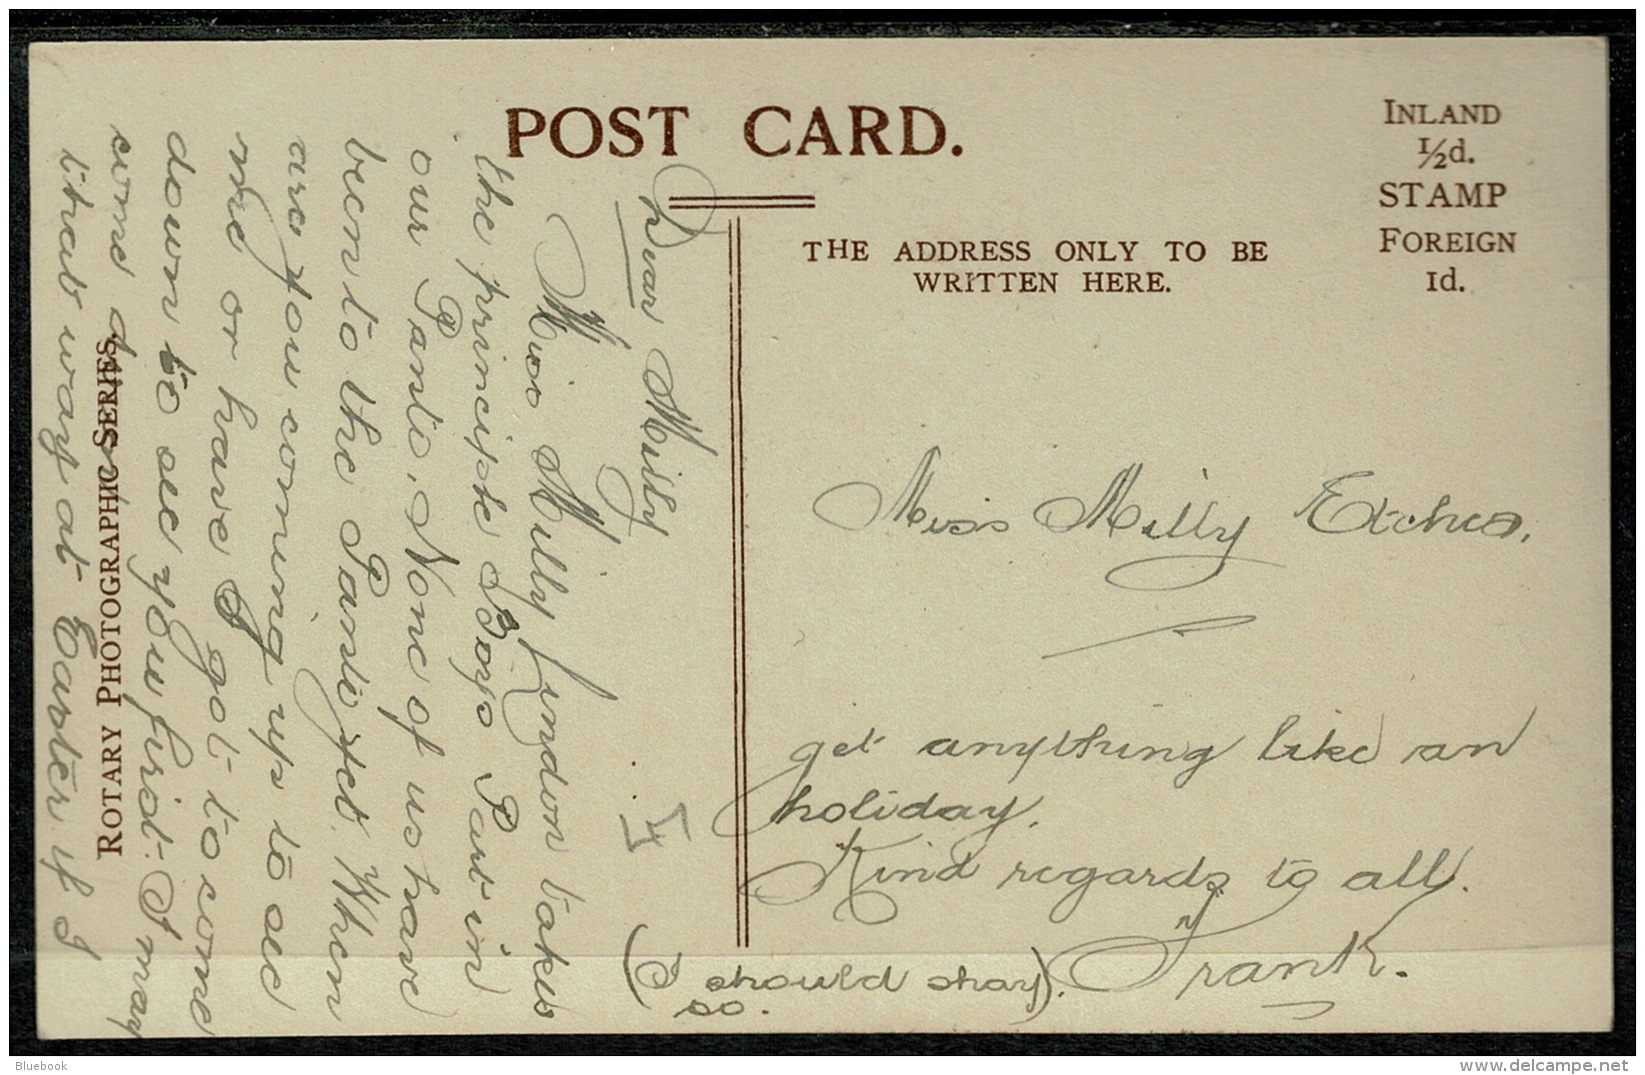 POST CARD.
INLAND
½d.
STAMP
FOREIGN
1d.
THE ADDRESS ONLY TO BE
WRITTEN HERE.
ROTARY PHOTOGRAPHIC SERIES
Dear Milly
Miss Milly Lindon takes
the principle Boys Part in
our Panto. None of us have
been to the Panto yet. When
are you coming up to see
me or have I got to come
down to see you first. I may
come down
that way at Easter if I
Miss Milly Etches.
get anything like an
holiday.
Kind regards to all.
Frank.
(I should shay).
so.
Bluebook
www.delcampe.net